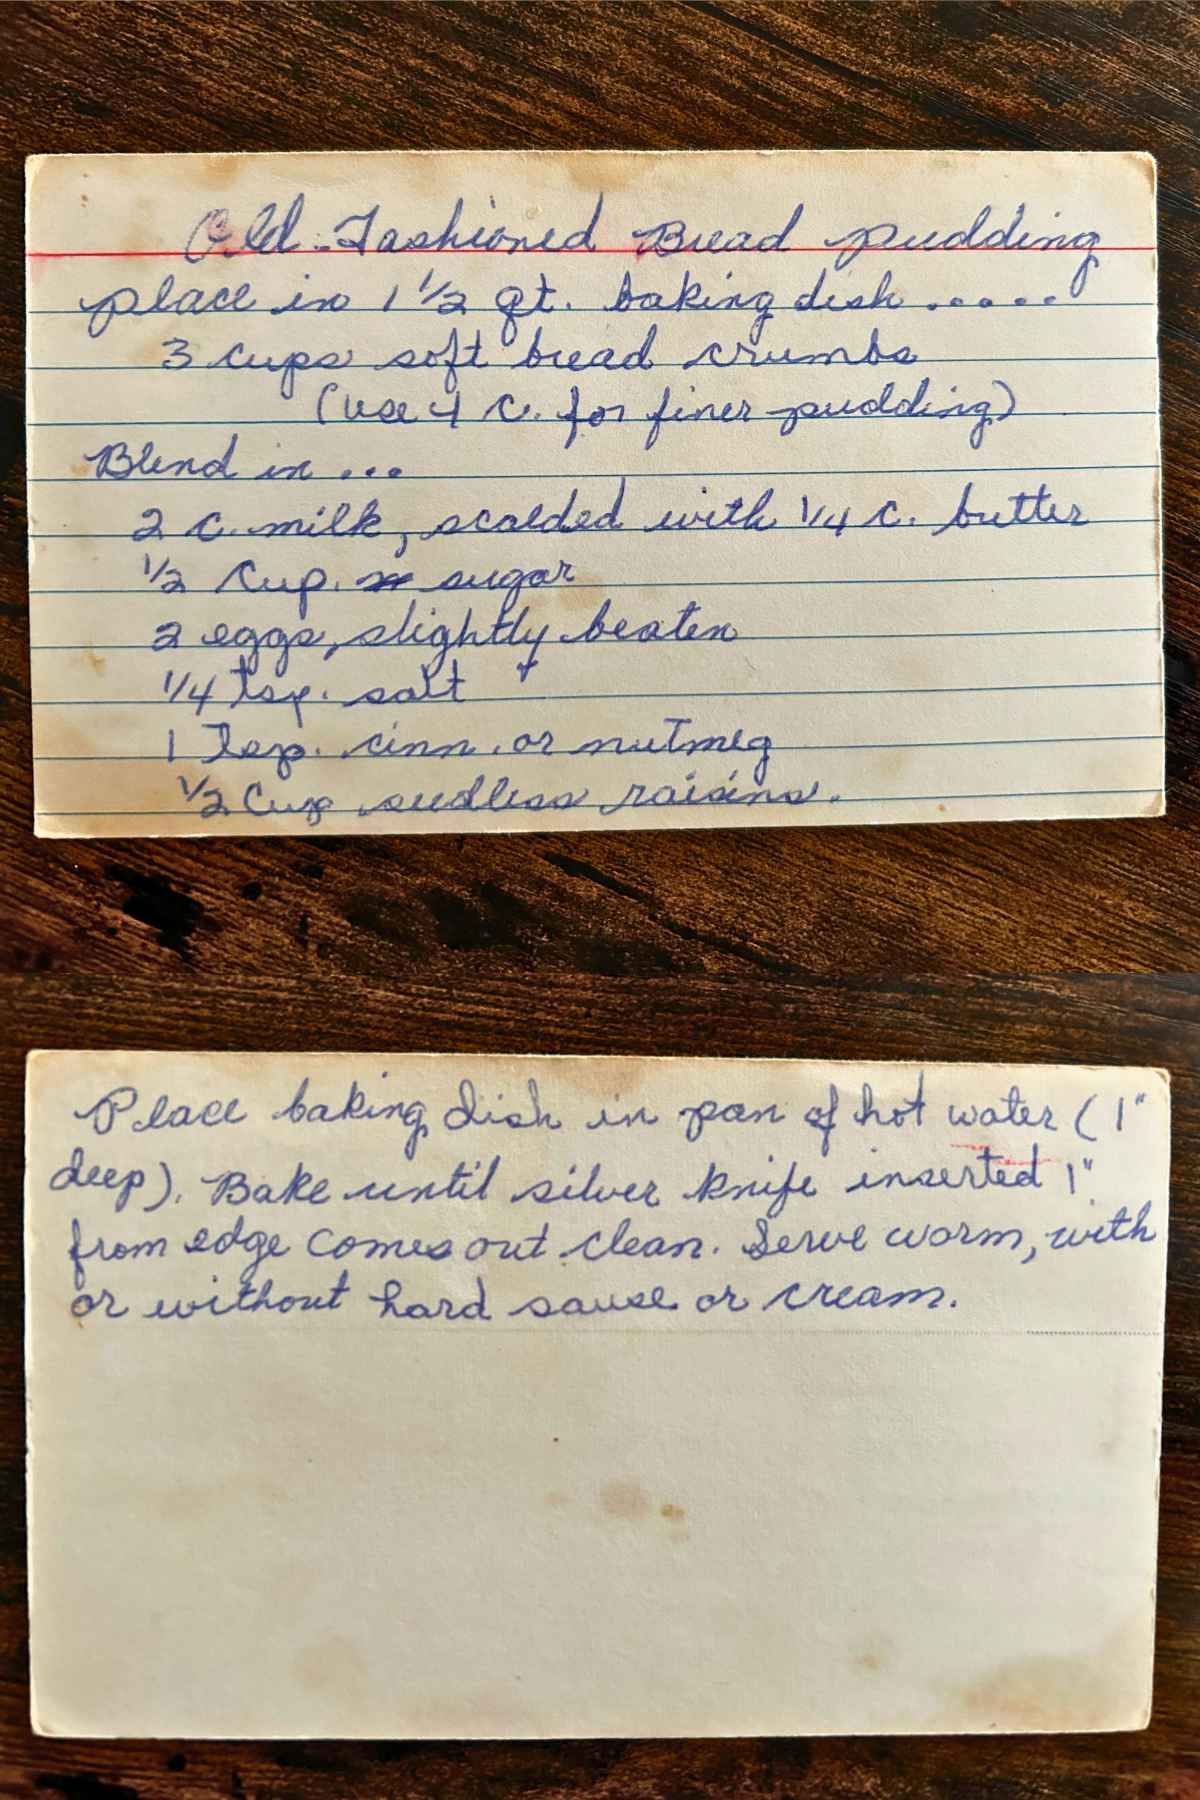 Old-Fashioned Bread pudding
place in 1 1/2 qt. baking dish .....
3 cups soft bread crumbs
(use 4 c. for finer pudding)
Blend in ...
2 c. milk, scalded with 1/4 c. butter
1/2 cup. sugar
2 eggs, slightly beaten
1/4 tsp. salt
1 tsp. cinn. or nutmeg
1/2 Cup seedless raisins.
Place baking dish in pan of hot water (1"
deep). Bake until silver knife inserted 1"
from edge comes out clean. Serve warm, with
or without hard sause or cream.